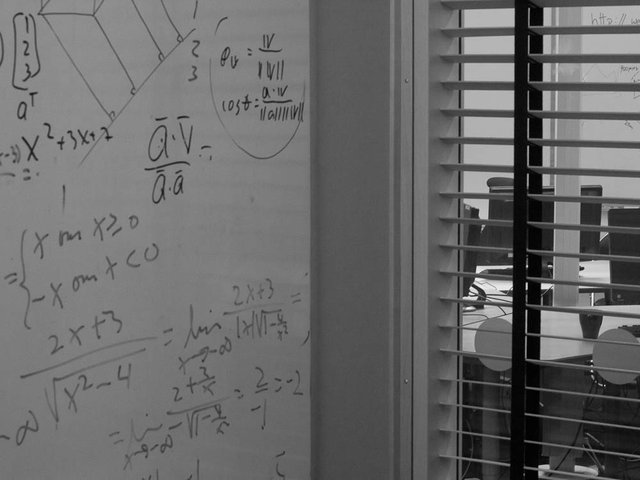 1
2
3
aᵀ
1
2
3
e_v = v / ||v||
cosθ = a·v / ||a|| ||v||
x² + 3x + 2
ā·v̄ / ā·ā =
= { x om x ≥ 0
-x om x < 0
2x+3 / √(x²-4) = lim x→-∞ 2x+3 / |x|√(1-4/x²) =
-∞
= lim x→-∞ 2+3/x / -√(1-4/x²) = 2/-1 = -2
http://w